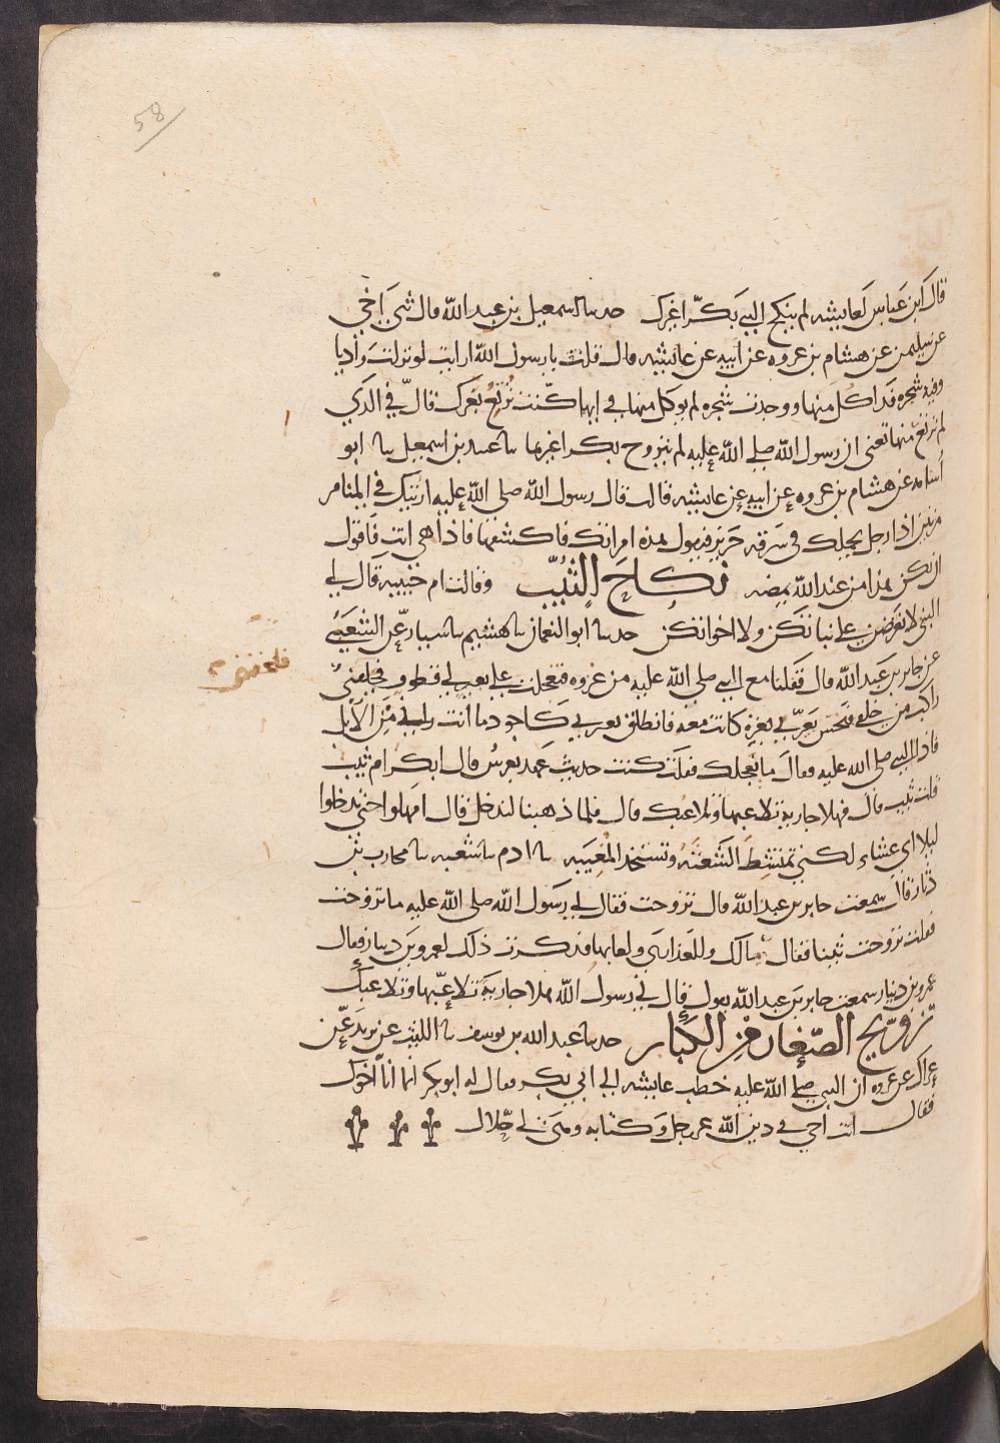 58
قال ابن عباس لعايشه لم ينكح النبي بكرا غيرك حدسا اسمعيل بن عبد الله قال ثني اخي
عن سليمن عن هشام بن عروه عن ابيه عن عائشه قال قلت يا رسول الله ارايت لو نزلت واديا
وفيه شجره قد اكل منها ووجدت شجره لم يوكل منها في ايها كنت ترتع بعيرك قال في الذي
لم يرتع منها تعني ان رسول الله صلى الله عليه لم يتزوج بكرا غيرها سا عبيد بن اسمعيل سا ابو
اسامه عن هشام بن عروه عن ابيه عن عايشه قالت قال رسول الله صلى الله عليه اريتك في المنام
مرتين اذا رجل يحملك في سرقه حرير فيقول هذه امراتك فاكشفها فاذا هي انت فاقول
ان يكن هذا من عند الله يمضه نكاح الثيب وقالت ام حبيبه قال لي
النبي لا تعرضن علي بناتكن ولا اخواتكن حدسا ابو النعمان سا هشيم سا سيار عن الشعبي
عن جابر بن عبد الله قال قفلنا مع النبي صلى الله عليه من غزوه فتعجلت على بعير لي قطوف فلحقني
راكب من خلفي فنخس بعيري بعنزه كانت معه فانطلق بعيري كاجود ما انت راي من الابل
فاذا النبي صلى الله عليه فقال ما يعجلك فقلت كنت حديث عهد بعرس قال ابكرا ام ثيب
قلت ثيب قال فهلا جاريه تلاعبها وتلاعبك قال فلما ذهبنا لندخل قال امهلوا حتى تدخلوا
ليلا اي عشاء لكي تمتشط الشعثه وتستحد المغيبه سا ادم سا شعبه سا محارب بن
دثار قال سمعت جابر بن عبد الله قال تزوجت فقال لي رسول الله صلى الله عليه ما تزوجت
فقلت تزوجت ثيبا فقال مالك وللعذارى ولعابها فذكرت ذلك لعمرو بن دينار فقال
عمرو بن دينار سمعت جابر بن عبد الله يقول قال لي رسول الله هلا جاريه تلاعبها وتلاعبك
تزويج الصغار من الكبار حدسا عبد الله بن يوسف سا الليث عن يزيد عن
عراك عن عروه ان النبي صلى الله عليه خطب عايشه الى ابي بكر فقال له ابو بكر انما انا اخوك
فقال انت اخي في دين الله عز وجل وكتابه وهي لي حلال